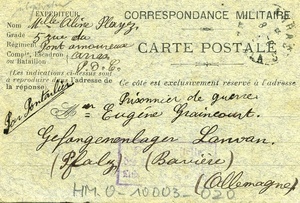 CORRESPONDANCE MILITAIRE
EXPÉDITEUR
Nom Mlle Aline Playez
CARTE POSTALE
Grade 5 rue du
Régiment Pont amoureux
Compie, Escadron Arras
ou Bataillon P.D.C.
(Les indications ci-dessus sont
à reproduire dans l'adresse de
la réponse.)
Ce côté est exclusivement réservé à l'adresse
Par Pontarlier
Prisonnier de guerre
Mr Eugène Graincourt
Gefangenenlager Landau
(Pfalz) (Bavière)
(Allemagne)
HM.0-10003-020